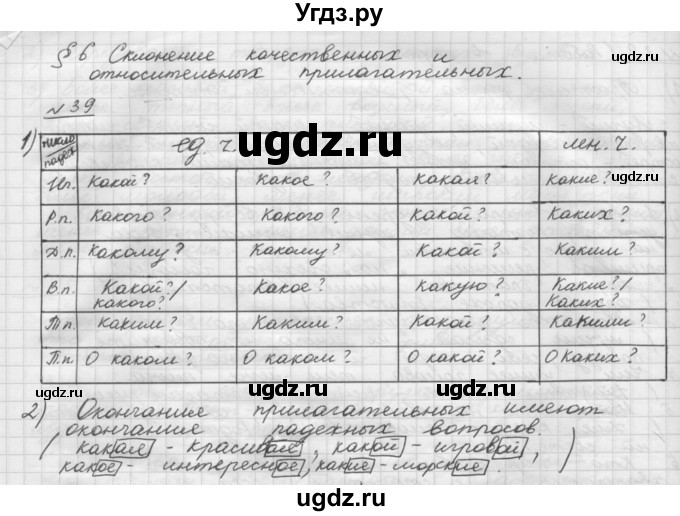 Угдз.ру
§ 6 Склонение качественных и
относительных прилагательных.
ugdz.ru
ugdz.ru
№ 39
ugdz.ru
1) число падеж ед. ч. мн. ч.
Ип. Какой? Какое? Какая? Какие?
ugdz.ru
Р.п. Какого? Какого? Какой? Каких?
Д.п. Какому? Какому? Какой? Каким?
В.п. Какой?/ Какое? какую? Какие?/
какого? Каких?
Т.п. Каким? Каким? Какой? Какими?
П.п. О каком? О каком? О какой? О Каких?
ugdz.ru
ugdz.ru
ugdz.ru
2) Окончание прилагательных имеют
окончание падежных вопросов.
(какая - красивая, какой - игровой,
какое - интересное, какие - морские. )
ugdz.ru
ugdz.ru
ugdz.ru